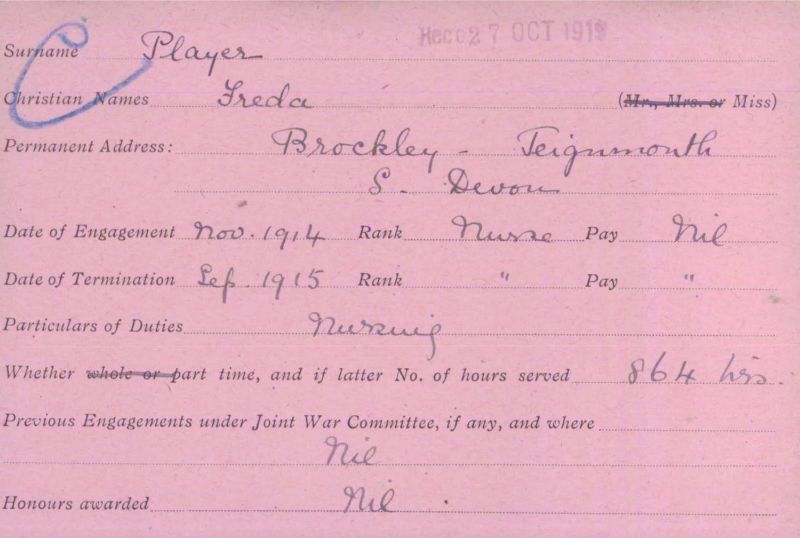 Recd 27 OCT 1919
Surname Player
Christian Names Freda (Mr., Mrs. or Miss)
Permanent Address: Brockley - Teignmouth
S. Devon
Date of Engagement Nov. 1914 Rank Nurse Pay Nil
Date of Termination Sep. 1915 Rank " Pay "
Particulars of Duties Nursing
Whether whole or part time, and if latter No. of hours served 864 hrs.
Previous Engagements under Joint War Committee, if any, and where
Nil
Honours awarded Nil.